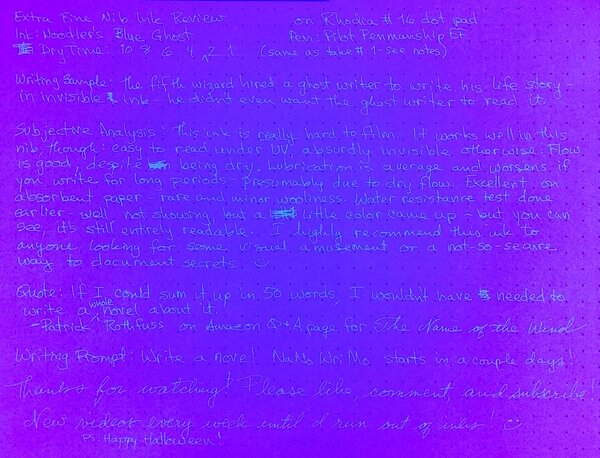 Extra Fine Nib Ink Review on Rhodia #16 dot pad
Ink: Noodler's Blue Ghost Pen: Pilot Penmanship EF
Dry Time: 10 8 6 4 2 1 (same as take #1 - see notes)
Writing Sample: The fifth wizard hired a ghost writer to write his life story -
in invisible ink - he didn't even want the ghost writer to read it.
Subjective Analysis: This ink is really hard to film. It works well in this
nib, though: easy to read under UV, absurdly invisible otherwise. Flow
is good, despite being dry. Lubrication is average and worsens if
you write for long periods - presumably due to dry flow. Excellent on
absorbent paper - rare and minor wooliness. Water resistance test done
earlier - well, not showing, but a little color came up - but you can
see, it's still entirely readable. I highly recommend this ink to
anyone looking for some visual amusement or a not-so-secure
way to document secrets.
Quote: If I could sum it up in 50 words, I wouldn't have needed to
write a whole novel about it.
- Patrick Rothfuss on Amazon Q+A page for The Name of the Wind
Writing Prompt: Write a novel! NaNoWriMo starts in a couple days!
Thanks for watching! Please like, comment, and subscribe!
New videos every week until I run out of inks!
PS. Happy Halloween!